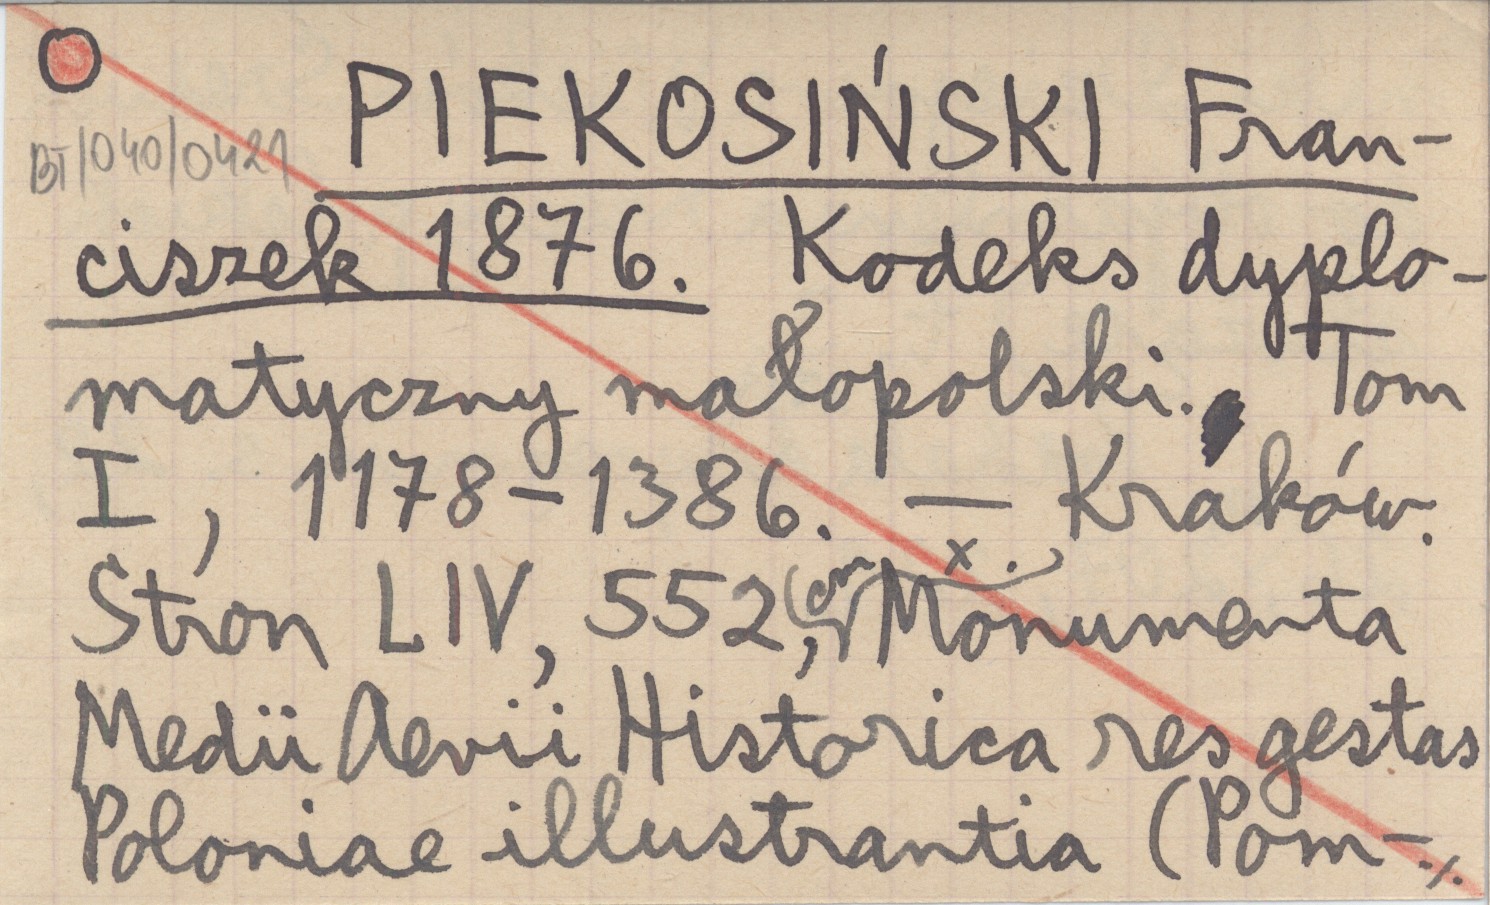 PIEKOSIŃSKI Fran-
BT/040/0421
ciszek 1876. Kodeks dyplo-
matyczny małopolski. Tom
I, 1178-1386. — Kraków.
Stron LIV, 552, (om Monumenta
Medii Aevii Historica res gestas
Poloniae illustrantia (Pom-
./.